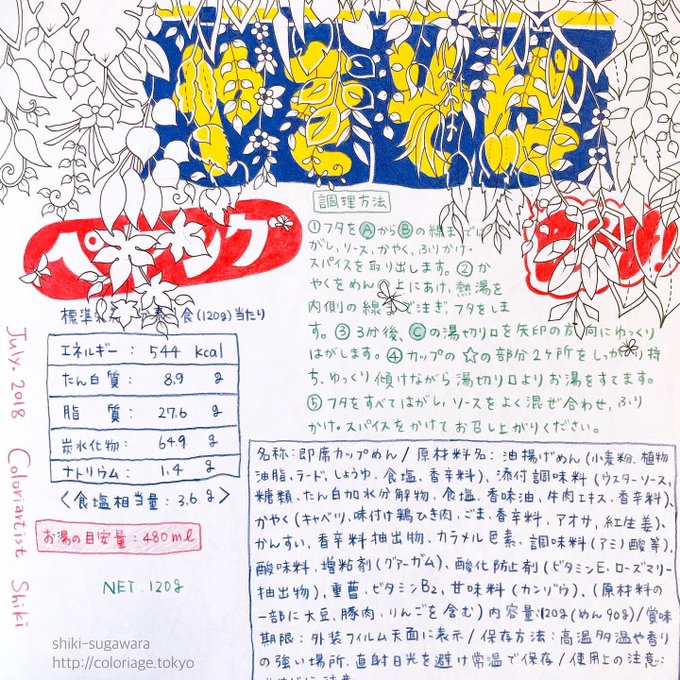 ペヤング
調理方法
①フタをⒶからⒷの線まではがし、ソース、かやく、ふりかけ・
スパイスを取り出します。②か
やくをめんの上にあけ、熱湯を
内側の線まで注ぎ、フタをしま
す。③3分後、Ⓒの湯切り口を矢印の方向にゆっくり
はがします。④カップの☆の部分2ケ所をしっかり持
ち、ゆっくり傾けながら湯切り口よりお湯をすてます。
⑤フタをすべてはがし、ソースをよく混ぜ合わせ、ふり
かけ・スパイスをかけてお召し上がりください。
標準 食(120g)当たり
エネルギー: 544 kcal
たん白質: 8.9 g
脂質: 27.6 g
炭水化物: 64.9 g
ナトリウム: 1.4 g
〈食塩相当量: 3.6g〉
お湯の目安量: 480ml
NET. 120g
名称: 即席カップめん/原材料名: 油揚げめん(小麦粉、植物
油脂、ラード、しょうゆ、食塩、香辛料)、添付調味料(ウスターソース、
糖類、たん白加水分解物、食塩、香味油、牛肉エキス、香辛料)、
かやく(キャベツ、味付け鶏ひき肉、ごま、香辛料、アオサ、紅生姜)、
かんすい、香辛料抽出物、カラメル色素、調味料(アミノ酸等)、
酸味料、増粘剤(グァーガム)、酸化防止剤(ビタミンE、ローズマリー
抽出物)、重曹、ビタミンB2、甘味料(カンゾウ)、(原材料の
一部に大豆、豚肉、りんごを含む)内容量:120g(めん90g)/賞味
期限: 外装フィルム天面に表示/保存方法: 高温多湿や香り
の強い場所、直射日光を避け常温で保存/使用上の注意:
July. 2018 Coloriartist Shiki
shiki-sugawara
http://coloriage.tokyo